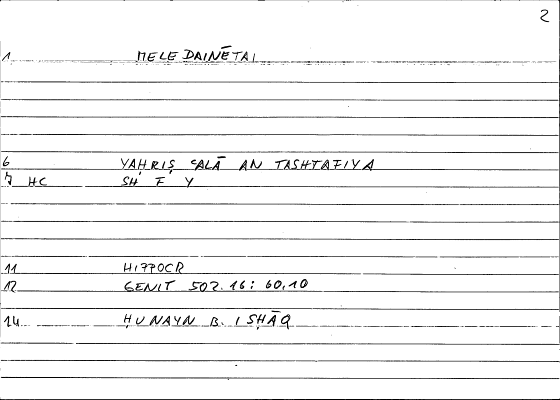 2
1 MELEDAINĒTAI
6 YAḤRIṢ ʿALĀ AN TASHTAFIYA
7 HC SH F Y
11 HIPPOCR
12 GENIT 502.16: 60,10
14 ḤUNAYN B. ISḤĀQ